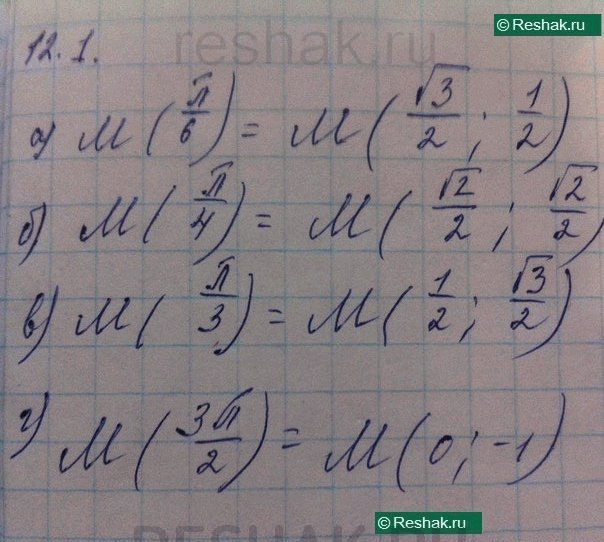 © Reshak.ru
reshak.ru
12.1.
а) M(π/6) = M(√3/2; 1/2)
б) M(π/4) = M(√2/2; √2/2)
в) M(π/3) = M(1/2; √3/2)
г) M(3π/2) = M(0; -1)
© Reshak.ru
RESHAK.RU